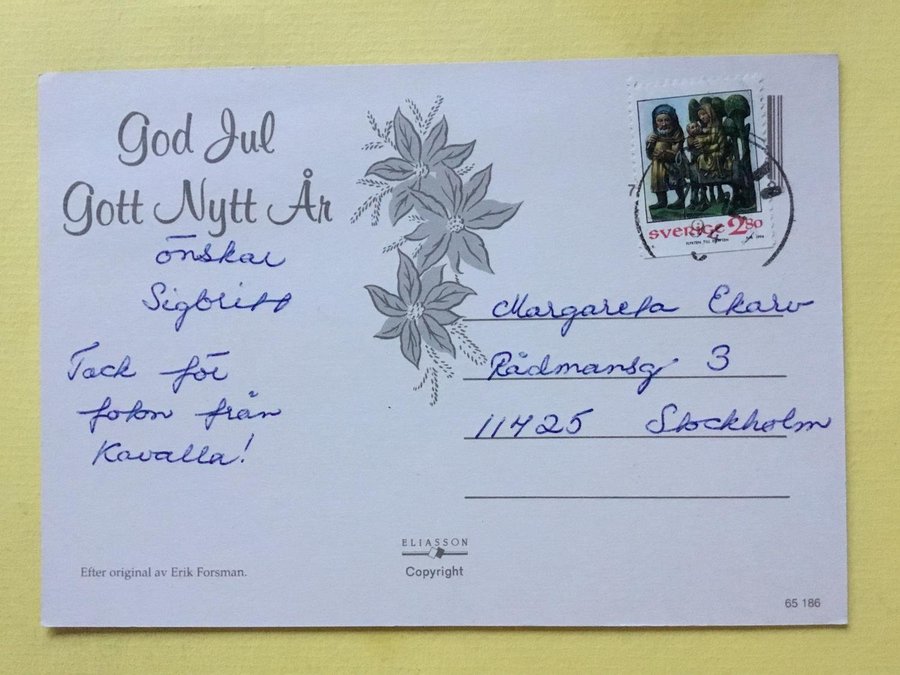 God Jul
Gott Nytt År
önskar
Sigbritt
Tack för
foton från
Kavalla!
SVERIGE 2.80
Margareta Ekarv
Rådmansg 3
11425 Stockholm
ELIASSON
Copyright
Efter original av Erik Forsman.
65 186